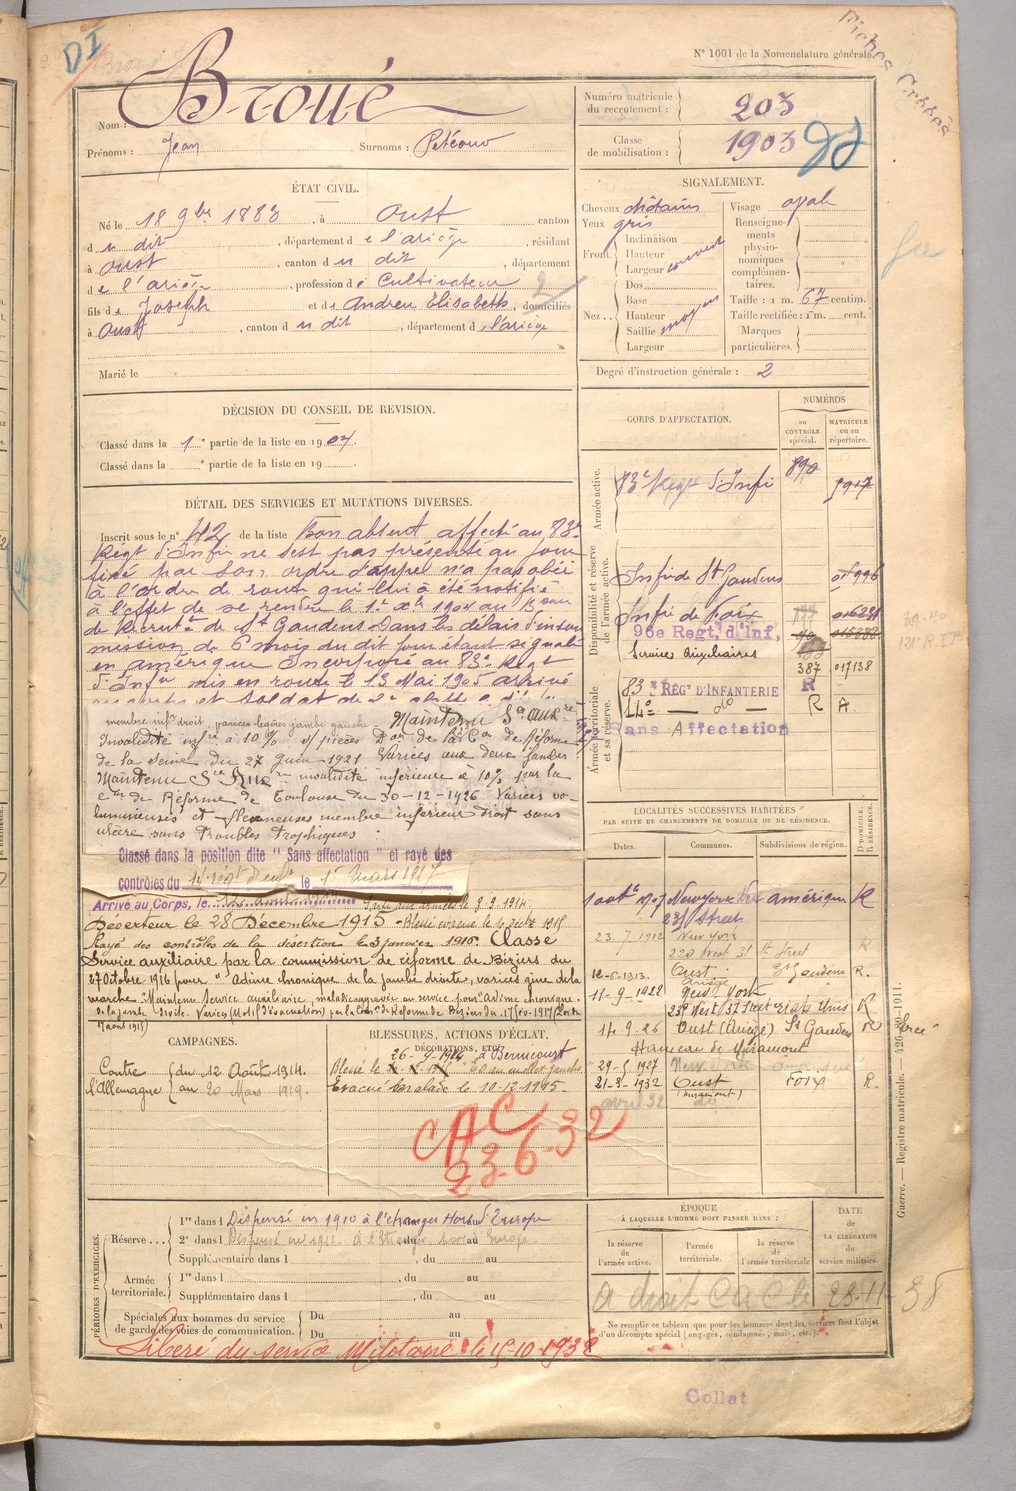 DI
Fichés Créées
N° 1001 de la Nomenclature générale.
Nom : Broué
Prénoms : Jean Surnoms : Petéouo
Numéro matricule du recrutement : 203
Classe de mobilisation : 1903
ÉTAT CIVIL.
Né le 18 9bre 1883, à Oust canton
du dit, département de l'ariège, résidant
à Oust, canton du dit, département
de l'ariège, profession de Cultivateur
fils de Joseph et de Andreu Elisabeth, domiciliés
à Oust, canton du dit, département de l'ariège
Marié le
SIGNALEMENT.
Cheveux châtains Visage ovale
Yeux gris
Front Inclinaison
Hauteur
Largeur couvert
Nez Dos
Base
Hauteur
Saillie moyen
Largeur
Renseignements physionomiques complémentaires.
Taille : 1 m. 67 centim.
Taille rectifiée : 1 m. cent.
Marques particulières.
Degré d'instruction générale : 2
DÉCISION DU CONSEIL DE REVISION.
Classé dans la 1e partie de la liste en 1904
Classé dans la e partie de la liste en 19
DÉTAIL DES SERVICES ET MUTATIONS DIVERSES.
Inscrit sous le n° 42 de la liste Bon absent affecté au 83e
Régt d'Infie ne s'est pas présenté au jour
fixé par son ordre d'appel n'a pas obéi
à l'ordre de route qui lui a été notifié
à l'effet de se rendre le 1er Xbre 1904 au Beau
de Recrutt de St Gaudens Dans les délais d'insou
mission de 6 mois du dit jour étant signalé
en amérique Incorporé au 83e Régt
d'Infie mis en route le 13 Mai 1905 arrivé
membre infr droit, varices légères jambe gauche - Maintenu Sce auxre
Invalidité infre à 10% s/ pièces Don de la Con de Réforme
de la Seine du 27 Juin 1921 Varices aux deux jambes
Maintenu Sce Auxre invalidité inférieure à 10% par la
con de Réforme de Toulouse du 30-12-1926 Varices vo
lumineuses et flexueuses membre inférieur droit sans
ulcère sans troubles trophiques
Classé dans la position dite " Sans affectation " et rayé des
contrôles du 14e régt d'infie le 1er Mars 1927
Arrivé au Corps, le 12 août 1914 Parti aux armées le 8.9.1914.
Déserteur le 28 Décembre 1915
Rayé des contrôles de la désertion le 3 janvier 1916. Classé
Service auxiliaire par la commission de réforme de Béziers du
27 Octobre 1916 pour " Œdème chronique de la jambe droite, varices gêne de la
marche. Maintenu Service auxiliaire, maladie aggravée au service pour Œdème chronique
CORPS D'AFFECTATION.
NUMÉROS
au CONTRÔLE spécial.
MATRICULE ou au répertoire.
Armée active.
83e Régt d'Infie 890 5917
Disponibilité et réserve de l'armée active.
Infie de St Gaudens 05996
Infie de Foix
96e Regt. d'Inf.
Service Auxiliaires 387 017138
Armée territoriale et sa réserve.
83e RÉGt D'INFANTERIE R
14e — do — R A.
Sans Affectation
LOCALITÉS SUCCESSIVES HABITÉES
PAR SUITE DE CHANGEMENTS DE DOMICILE OU DE RÉSIDENCE.
Dates. Communes. Subdivisions de région. D. DOMICILE. R. RÉSIDENCE.
1 août 1907 New York amérique R
231 Street
23.7.1912 New York
220 West 31 St Street R
12-6-1913. Oust. St Gaudens R.
Ariège
11-9-1922 New York
37 Street Etats Unis R
14.9.26 Oust (Ariège) St Gaudens R
Hameau de Miramont
29-5-1927 New York amérique
21-3-1932 Oust Foix R.
(Miramont)
avril 32 do
CAMPAGNES.
Contre l'Allemagne du 12 Août 1914.
au 20 Mars 1919.
BLESSURES, ACTIONS D'ÉCLAT,
DÉCORATIONS, ETC.
26-9-1914 à Bernicourt
Blessé le au mollet gauche
Evacué malade le 10-12-1915
CAC
23-6-32
PÉRIODES D'EXERCICES.
Réserve 1re dans l Dispensé en 1910 à l'étranger Hors d'Europe
2e dans l Dispensé en 1912 à l'Etranger hors Europe
Supplémentaire dans l , du au
Armée territoriale. 1re dans l , du au
Supplémentaire dans l , du au
Spéciales aux hommes du service de garde des voies de communication. Du au
Du au
Libéré du service Militaire le 15-10-1932
ÉPOQUE
À LAQUELLE L'HOMME DOIT PASSER DANS :
la réserve de l'armée active.
l'armée territoriale.
la réserve de l'armée territoriale
DATE de LA LIBÉRATION du service militaire.
A droit CaC le 23-11-38
Ne remplir ce tableau que pour les hommes dont les services font l'objet
d'un décompte spécial (engagés, condamnés, omis, etc.).
Guerre. — Registre matricule. — 426-30-1911.
Collat